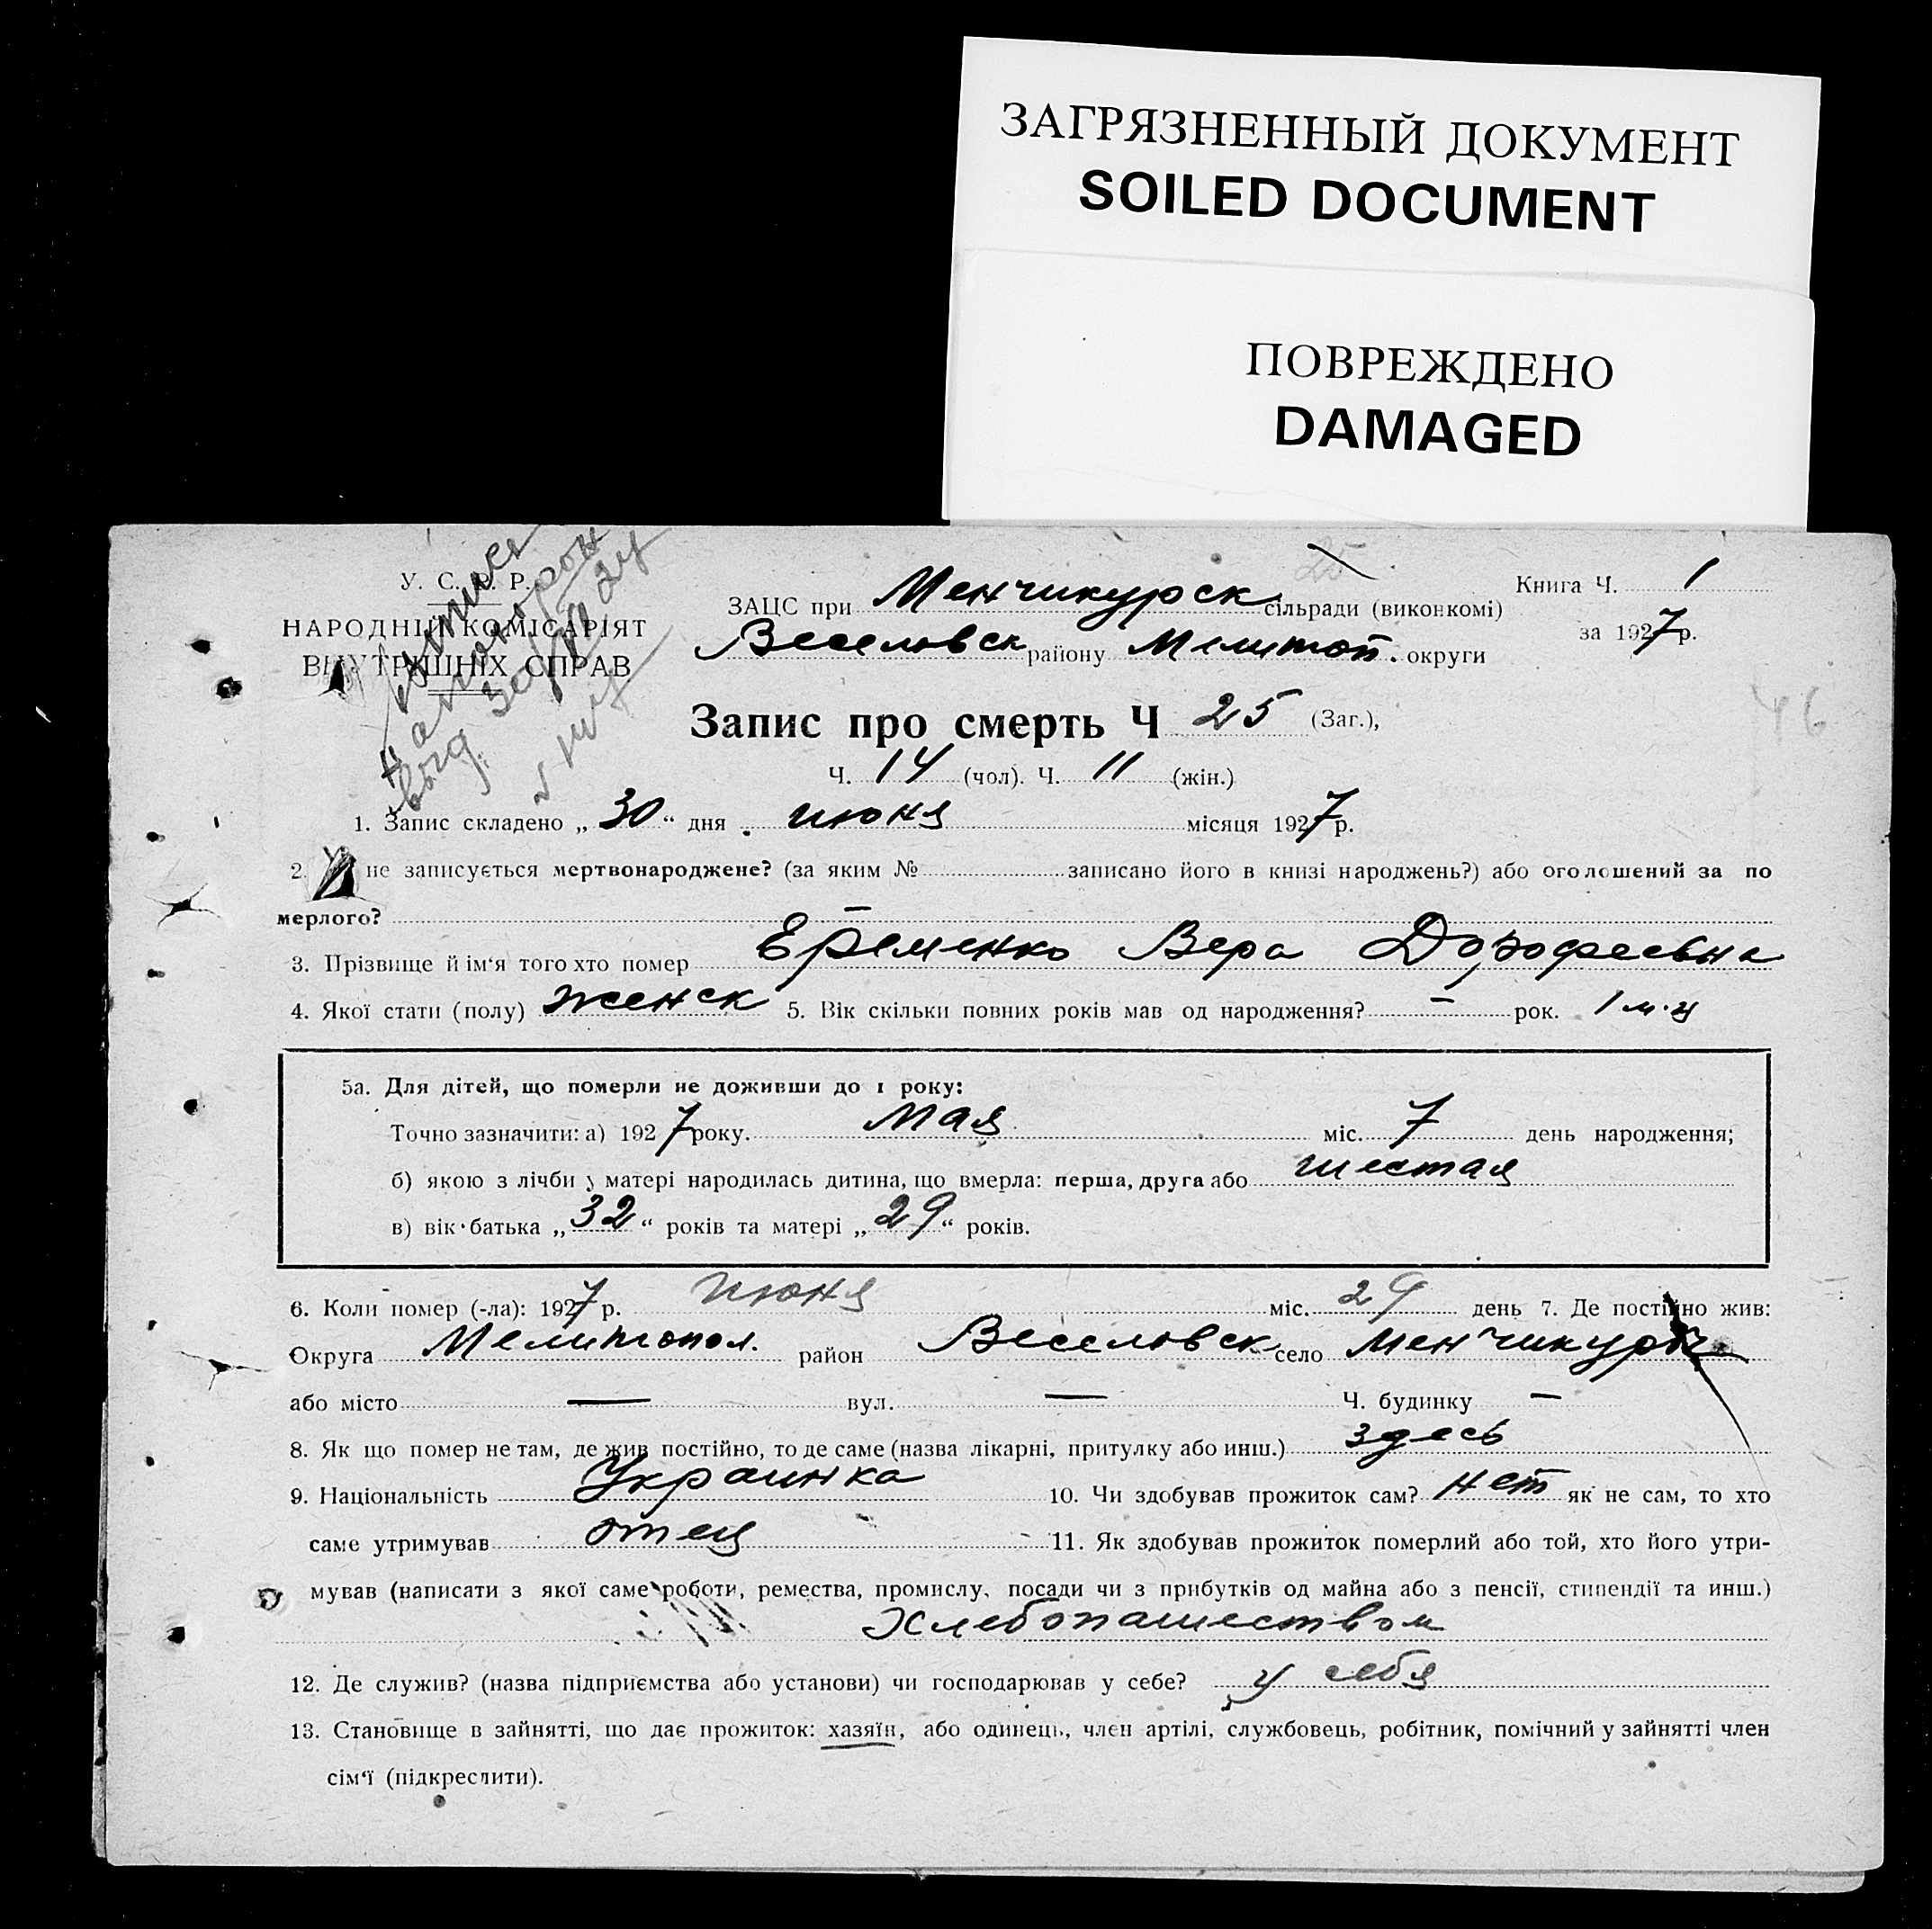 ЗАГРЯЗНЕННЫЙ ДОКУМЕНТ
SOILED DOCUMENT
ПОВРЕЖДЕНО
DAMAGED
У. С. Р. Р.
НАРОДНІЙ КОМІСАРІЯТ
ВНУТРІШНІХ СПРАВ
25
ЗАЦС при Менчикурск сільради (виконкомі)
Книга Ч. 1
Веселовск району Мелитоп. округи
за 1927 р.
46
Запис про смерть Ч 25 (Заг.),
Ч. 14 (чол). Ч. 11 (жін.)
1. Запис складено „ 30 “ дня июня місяця 1927 р.
2. не записується мертвонароджене? (за яким № записано його в книзі народжень?) або оголошений за по
мерлого? —
3. Прізвище й ім‘я того хто помер Еременко Вера Дорофеевна
4. Якої стати (полу) женск 5. Вік скільки повних років мав од народження? — рок. 1 м-ц
5а. Для дітей, що померли не доживши до 1 року:
Точно зазначити: а) 1927 року. Мая міс. 7 день народження;
б) якою з лічби у матері народилась дитина, що вмерла: перша, друга або шестая
в) вік батька „ 32 “ років та матері „ 29 “ років.
6. Коли помер (-ла): 1927 р. июня міс. 29 день 7. Де постійно жив:
Округа Мелитопол. район Веселовск село Менчикуры
або місто — вул. — Ч. будинку —
8. Як що помер не там, де жив постійно, то де саме (назва лікарні, притулку або инш.) здесь
9. Національність Украинка 10. Чи здобував прожиток сам? нет як не сам, то хто
саме утримував отец 11. Як здобував прожиток померлий або той, хто його утри-
мував (написати з якої саме роботи, ремества, промислу, посади чи з прибутків од майна або з пенсії, стипендії та инш.)
Хлебопашеством
12. Де служив? (назва підприємства або установи) чи господарював у себе? у себя
13. Становище в зайнятті, що дає прожиток: хазяїн, або одинець, член артілі, службовець, робітник, помічний у зайнятті член
сім‘ї (підкреслити).